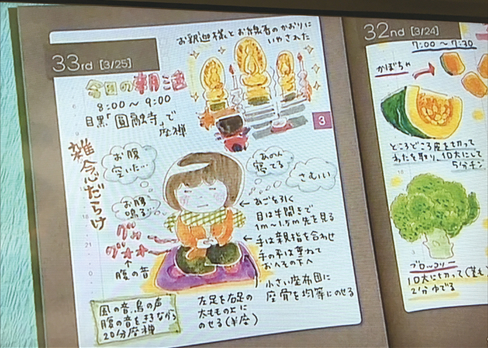 33rd [3/25]
お釈迦様とお線香のかおりに
いやされた
今週の朝活
8:00〜9:00
目黒「圓融寺」で
座禅
3
雑念だらけ
お腹
空いた…
あんよ
寝てる
さむい
お腹
鳴る
グゥ
グオォ
腹の音
←あごを引く
目は半開きで
1m〜1.5m先を見る
手は親指を合わせ
おへその下へ
小さい座布団に
座骨を均等にのせる
左足を右足の
太ももの上に
のせる(半座)
風の音、鳥の声
腹の音を聞きながら
20分座禅
32nd [3/24]
7:00〜7:30
かぼちゃ
ところどころ皮を切って
わたを取り、10大にして
5分チン
ブロッコリー
10大に切って
2分ゆでる